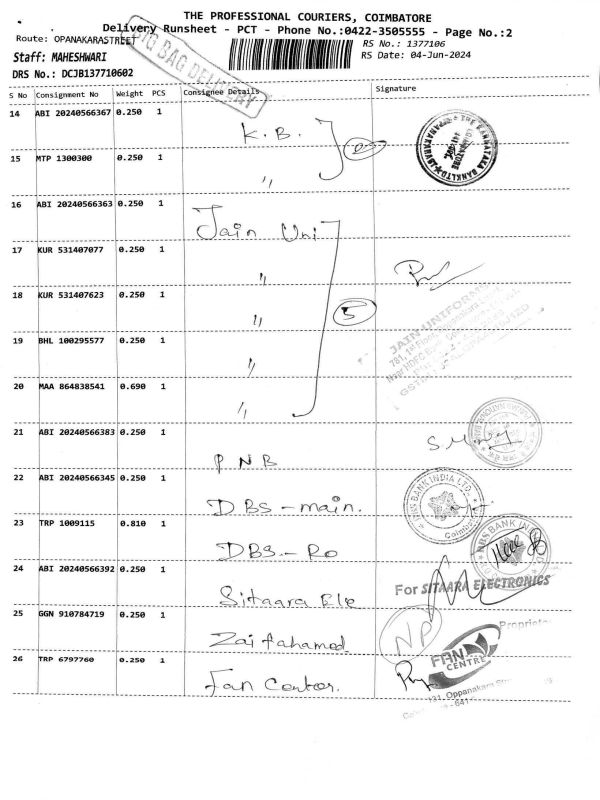 THE PROFESSIONAL COURIERS, COIMBATORE
Delivery Runsheet - PCT - Phone No.:0422-3505555 - Page No.:2
Route: OPANAKARASTREET
RS No.: 1377106
Staff: MAHESHWARI
RS Date: 04-Jun-2024
DRS No.: DCJB137710602
BAG DELIVERY
S No Consignment No Weight PCS Consignee Details Signature
14 ABI 20240566367 0.250 1 K.B.
15 MTP 1300300 0.250 1 "
16 ABI 20240566363 0.250 1 Jain Uni
17 KUR 531407077 0.250 1 "
18 KUR 531407623 0.250 1 " 5
19 BHL 100295577 0.250 1 "
JAIN UNIFORMS
20 MAA 864838541 0.690 1 "
21 ABI 20240566383 0.250 1 PNB
22 ABI 20240566345 0.250 1 DBS-main.
DBS BANK INDIA LTD.
Coimbatore
23 TRP 1009115 0.810 1 DBS-Ro
DBS BANK INDIA LTD.
24 ABI 20240566392 0.250 1 Sitaara Ele
For SITAARA ELECTRONICS
25 GGN 910784719 0.250 1 Zaifahamed NP
Proprietor
FAN CENTRE
26 TRP 6797760 0.250 1 Fan Center.
131, Oppanakara